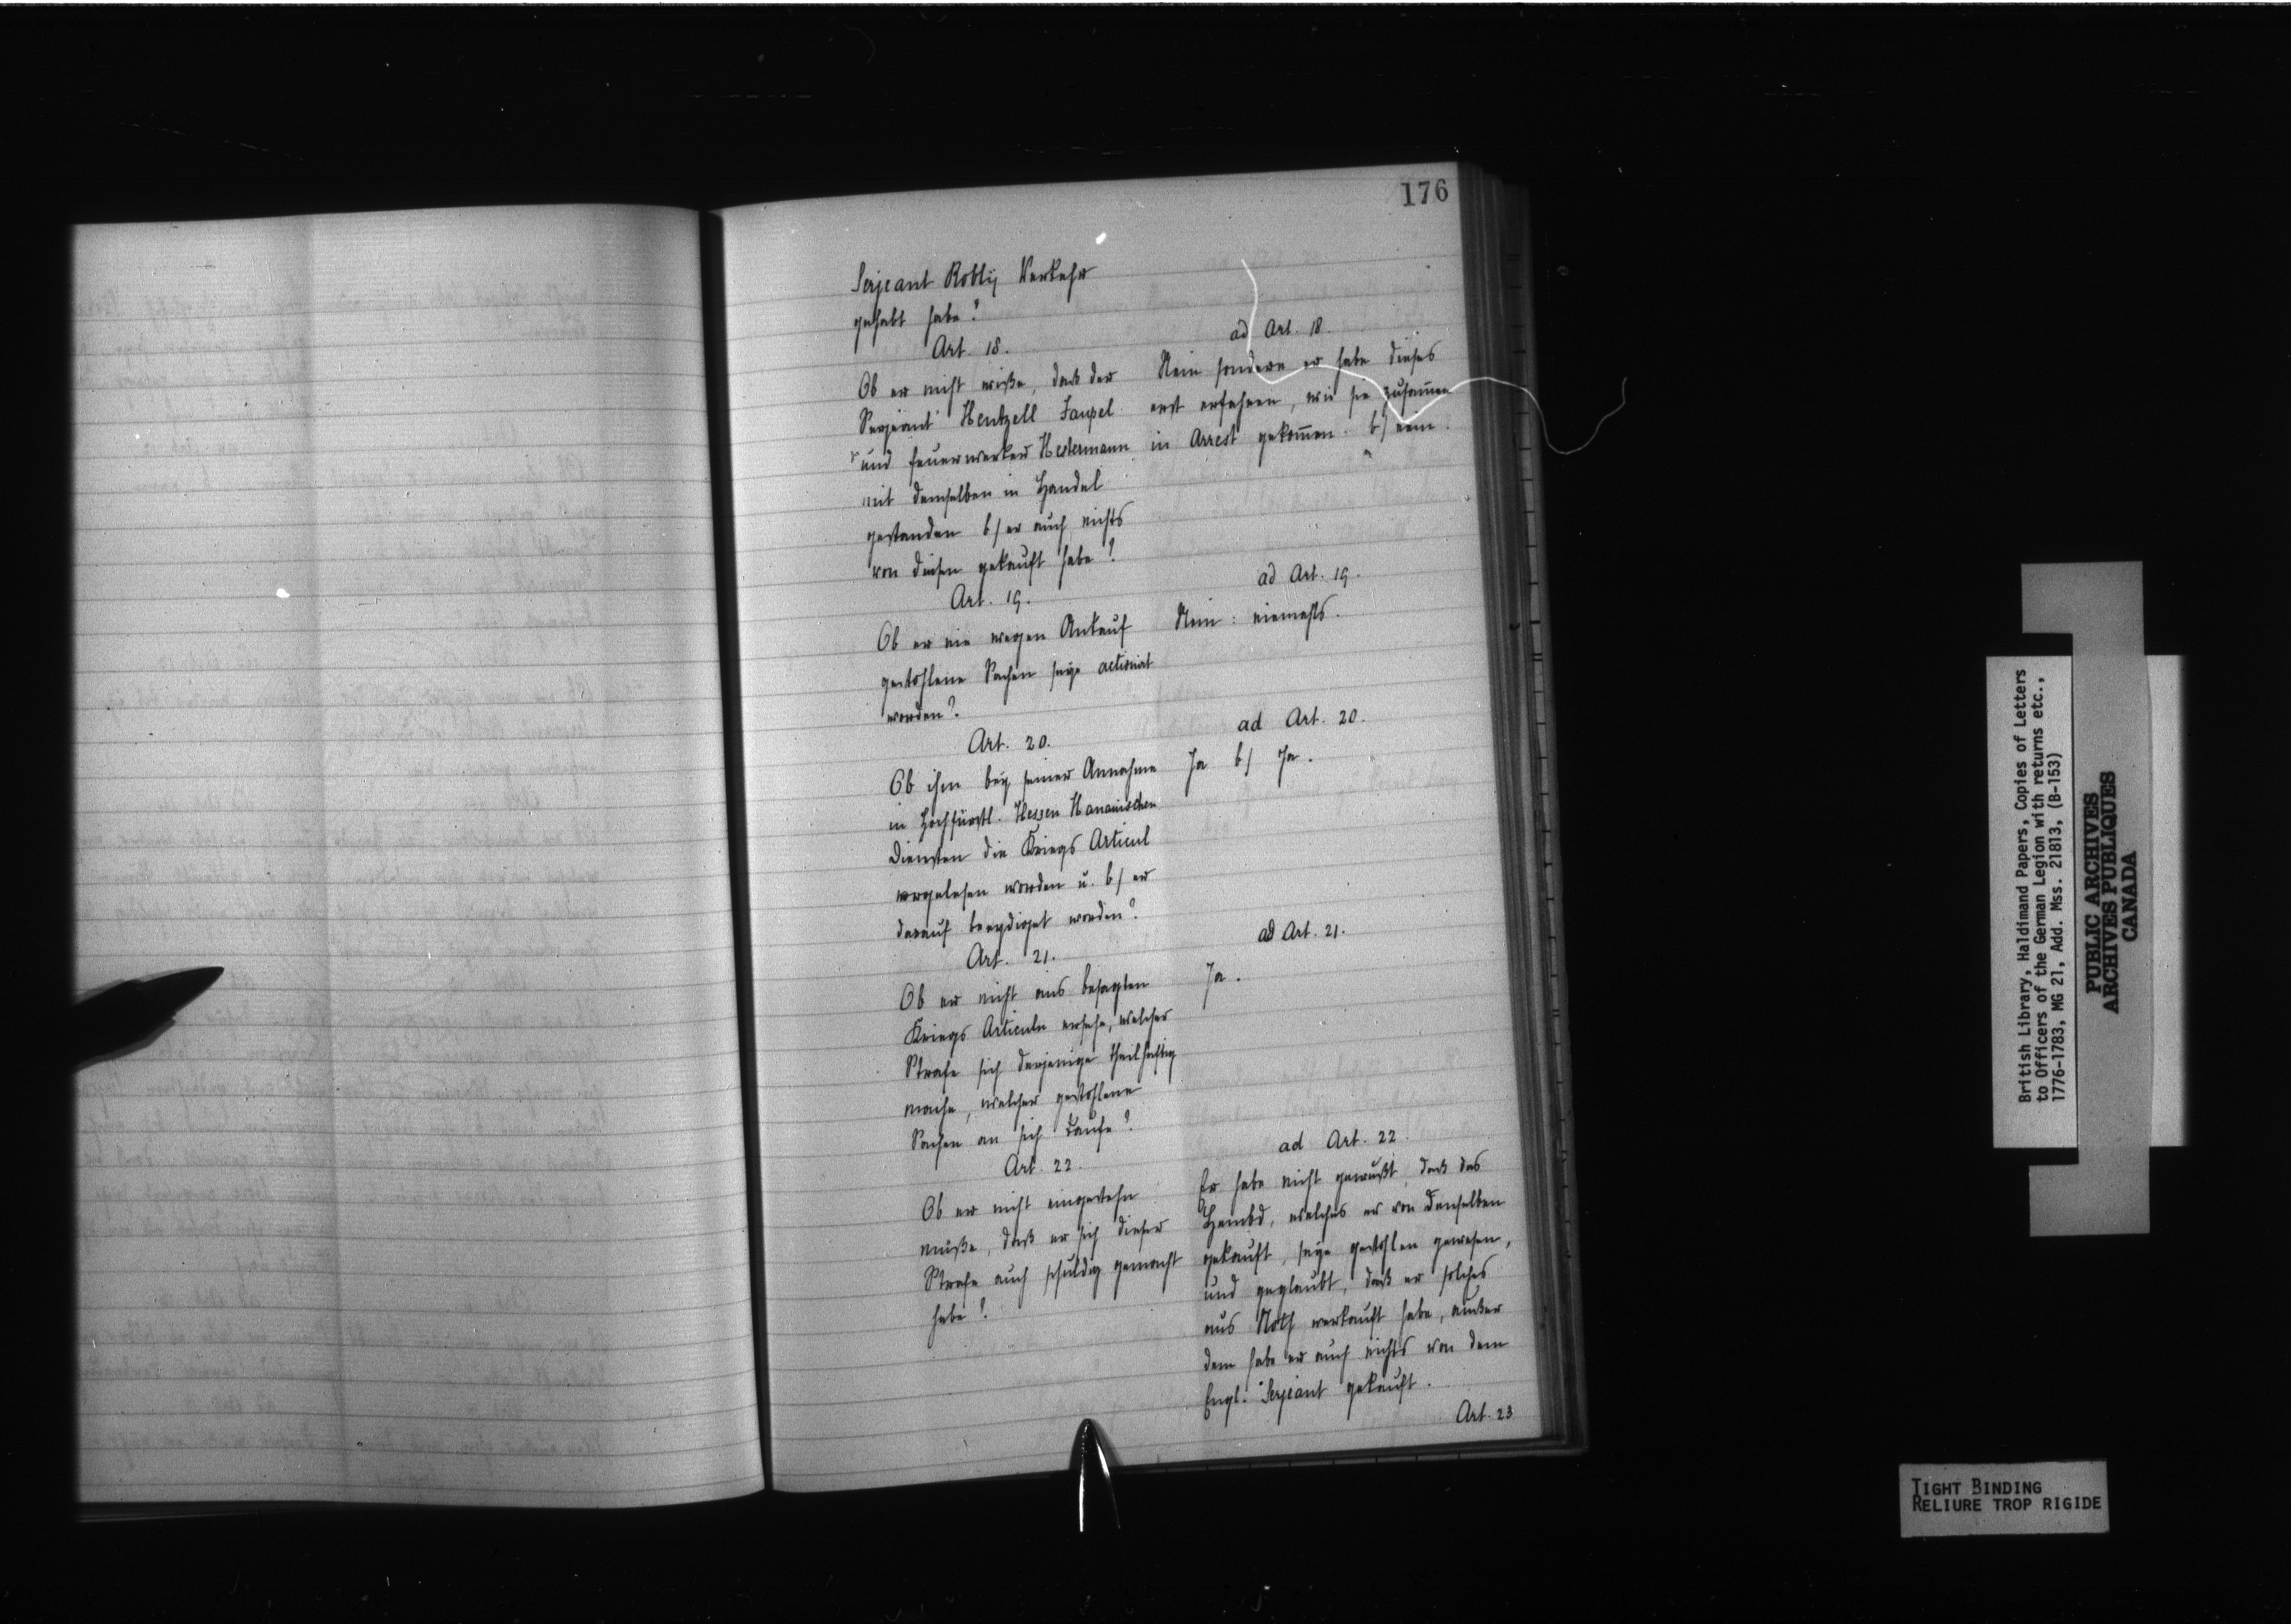 176
Serjeant Robly Verkehr
gehabt habe?
Art. 18.
Ob er nicht wiße, daß der
Serjeant Hentzell Faupel
und Feuerwerker Hestermann
mit demselben in Handel
gestanden b/ er auch nichts
von diesen gekauft habe?
ad Art. 18.
Nein sondern er habe dieses
erst erfahren, wie sie zusam̄en
in Arrest gekom̄en. b/ nein.
Art. 19.
Ob er nie wegen Ankauf
gestohlene Sachen seye actionirt
worden?
ad Art. 19.
Nein: niemahls.
Art. 20.
Ob ihm bey seiner Annahme
in Hochfürstl. Hessen Hanauischen
Diensten die Kriegs Articul
vorgelesen worden u. b/ er
darauf beeydiget worden?
ad Art. 20.
Ja b/ Ja.
Art. 21.
Ob er nicht aus besagten
Kriegs Articuln ersehe, welcher
Strafe sich derjenige theilhaftig
mache, welcher gestohlene
Sachen an sich kaufe?
ad Art. 21.
Ja.
Art. 22.
Ob er nicht eingestehn
müße, daß er sich dieser
Strafe auch schuldig gemacht
habe?
ad Art. 22.
Er habe nicht gewußt, daß das
Hembd, welches er von denselben
gekauft, seye gestohlen gewesen,
und geglaubt, daß er solches
aus Noth verkauft habe, außer
dem habe er auch nichts von dem
Engl. Serjeant gekauft.
Art. 23
British Library, Haldimand Papers, Copies of Letters
to Officers of the German Legion with returns etc.,
1776-1783, MG 21, Add. Mss. 21813, (B-153)
PUBLIC ARCHIVES
ARCHIVES PUBLIQUES
CANADA
TIGHT BINDING
RELIURE TROP RIGIDE